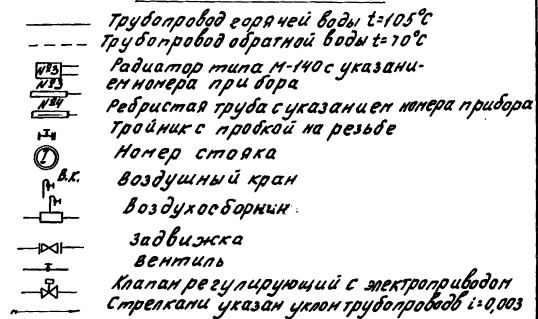 Трубопровод горячей воды t=105°С
Трубопровод обратной воды t=70°С
№3 Радиатор типа М-140 с указани-
№3 ем номера прибора
№4 Ребристая труба с указанием номера прибора
Тройник с пробкой на резьбе
I Номер стояка
В.К. Воздушный кран
Воздухосборник
Задвижка
Вентиль
Клапан регулирующий с электроприводом
Стрелками указан уклон трубопроводов i=0,003